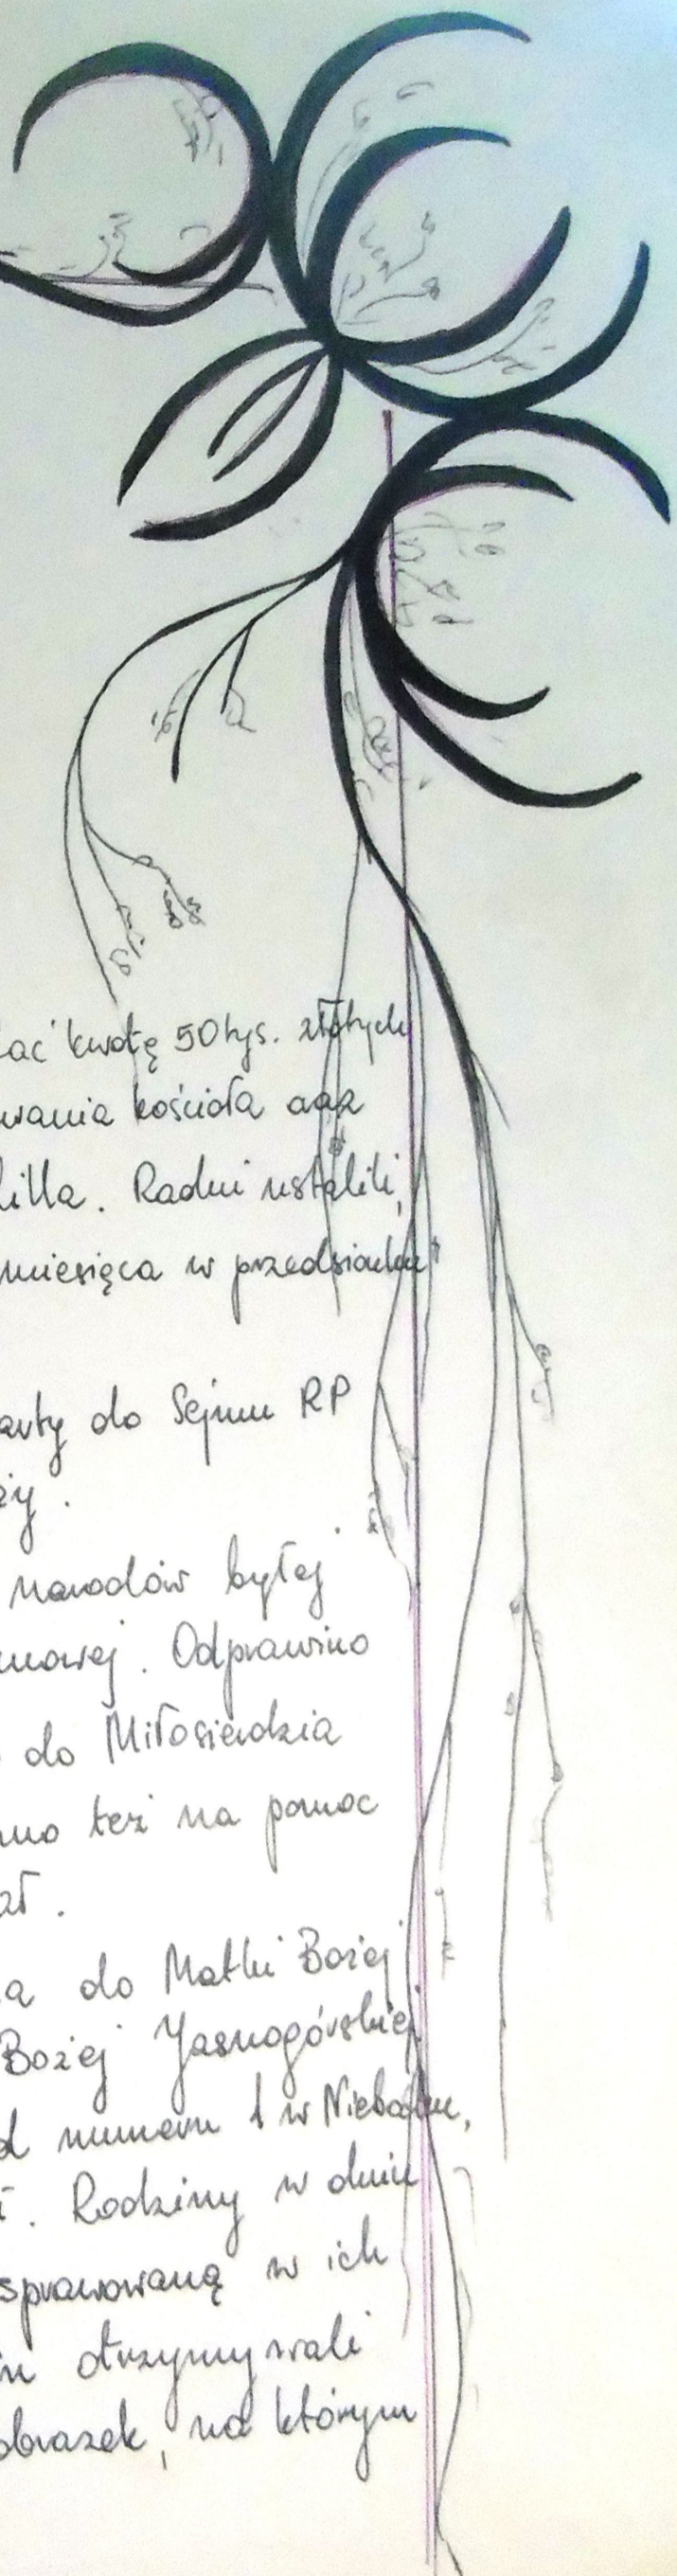 ać kwotę 50 tys. złotych
wania kościoła oraz
lilla. Radni ustalili,
miesiąca w przedsionku
arty do Sejmu RP
ży.
narodów byłej
mowej. Odprawiono
do Miłosierdzia
no też na pomoc
zł.
ą do Matki Bożej
Bożej Jasnogórskiej
d numeru 1 w Niebocku,
ł. Rodziny w dniu
sprawowaną w ich
otrzymywali
obrazek, na którym